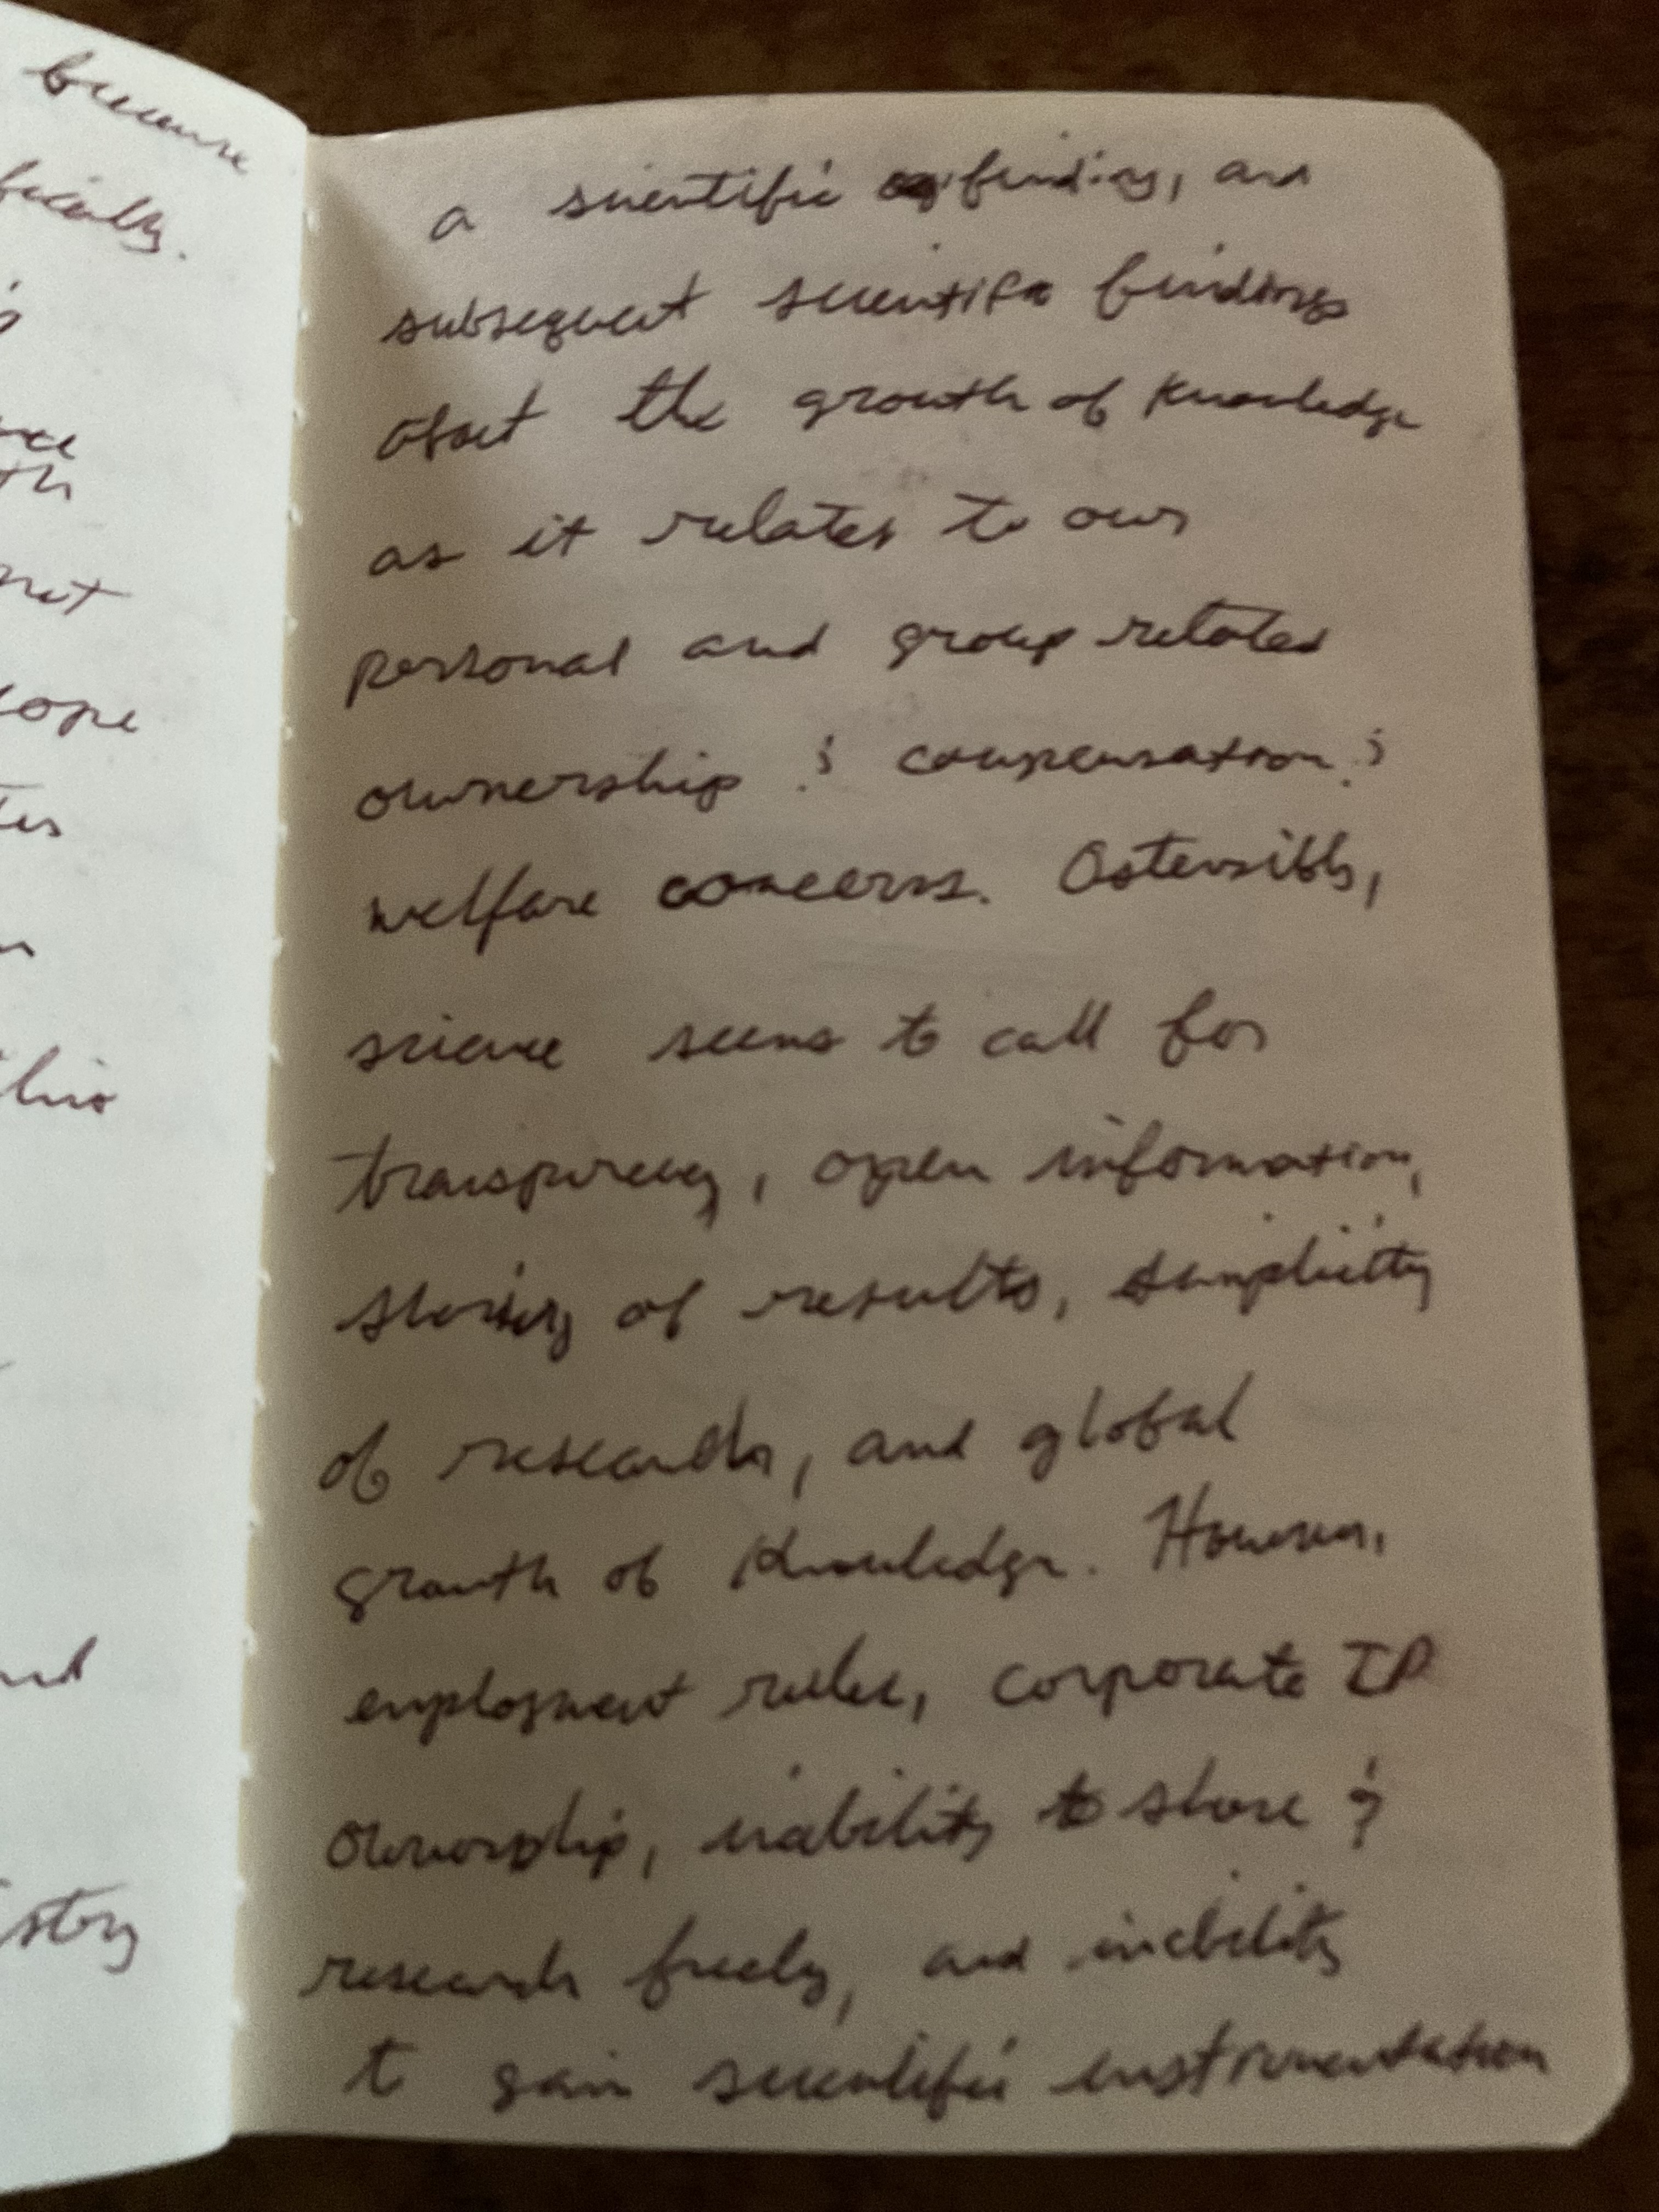 because
a scientific finding, and
subsequent scientific findings
about the growth of knowledge
as it relates to our
personal and group related
ownership & compensation &
welfare concerns. Ostensibly,
science seems to call for
transparency, open information,
sharing of results, simplicity
of research, and global
growth of knowledge. However,
employment rules, corporate IP
ownership, inability to share &
research freely, and inability
to gain scientific instrumentation